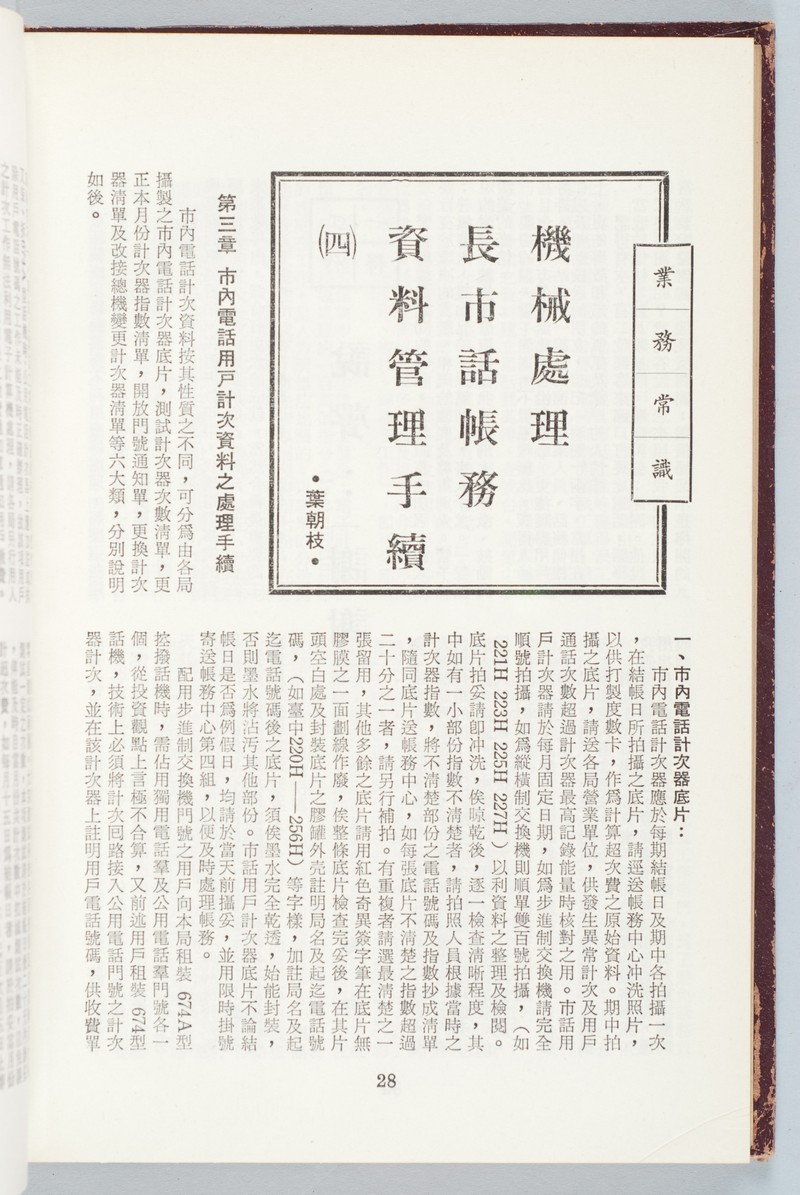 業務常識
機械處理
長市話帳務
資料管理手續
㈣
•葉朝枝•
第三章 市內電話用戶計次資料之處理手續
市內電話計次資料按其性質之不同，可分爲由各局
攝製之市內電話計次器底片，測試計次器次數清單，更
正本月份計次器指數清單，開放門號通知單，更換計次
器清單及改接總機變更計次器清單等六大類，分別說明
如後。
一、市內電話計次器底片：
市內電話計次器應於每期結帳日及期中各拍攝一次
，在結帳日所拍攝之底片，請逕送帳務中心冲洗照片，
以供打製度數卡，作爲計算超次費之原始資料。期中拍
攝之底片，請送各局營業單位，供發生異常計次及用戶
通話次數超過計次器最高記錄能量時核對之用。市話用
戶計次器請於每月固定日期，如爲步進制交換機請完全
順號拍攝，如爲縱橫制交換機則順單雙百號拍攝，（如
221H 223H 225H 227H ）以利資料之整理及檢閱。
底片拍妥請卽冲洗，俟晾乾後，逐一檢查清晰程度，其
中如有一小部份指數不清楚者，請拍照人員根據當時之
計次器指數，將不清楚部份之電話號碼及指數抄成清單
，隨同底片送帳務中心，如每張底片不清楚之指數超過
二十分之一者，請另行補拍。有重複者請選最清楚之一
張留用，其他多餘之底片請用紅色奇異簽字筆在底片無
膠膜之一面劃線作廢，俟整條底片檢查完妥後，在其片
頭空白處及封裝底片之膠罐外壳註明局名及起迄電話號
碼，（如臺中220H——256H）等字樣，加註局名及起
迄電話號碼後之底片，須俟墨水完全乾透，始能封裝，
否則墨水將沾汚其他部份。市話用戶計次器底片不論結
帳日是否爲例假日，均請於當天前攝妥，並用限時掛號
寄送帳務中心第四組，以便及時處理帳務。
配用步進制交換機門號之用戶向本局租裝 674A型
控撥話機時，需佔用獨用電話羣及公用電話羣門號各一
個，從投資觀點上言極不合算，又前述用戶租裝 674型
話機，技術上必須將計次囘路接入公用電話門號之計次
器計次，並在該計次器上註明用戶電話號碼，供收費單
28